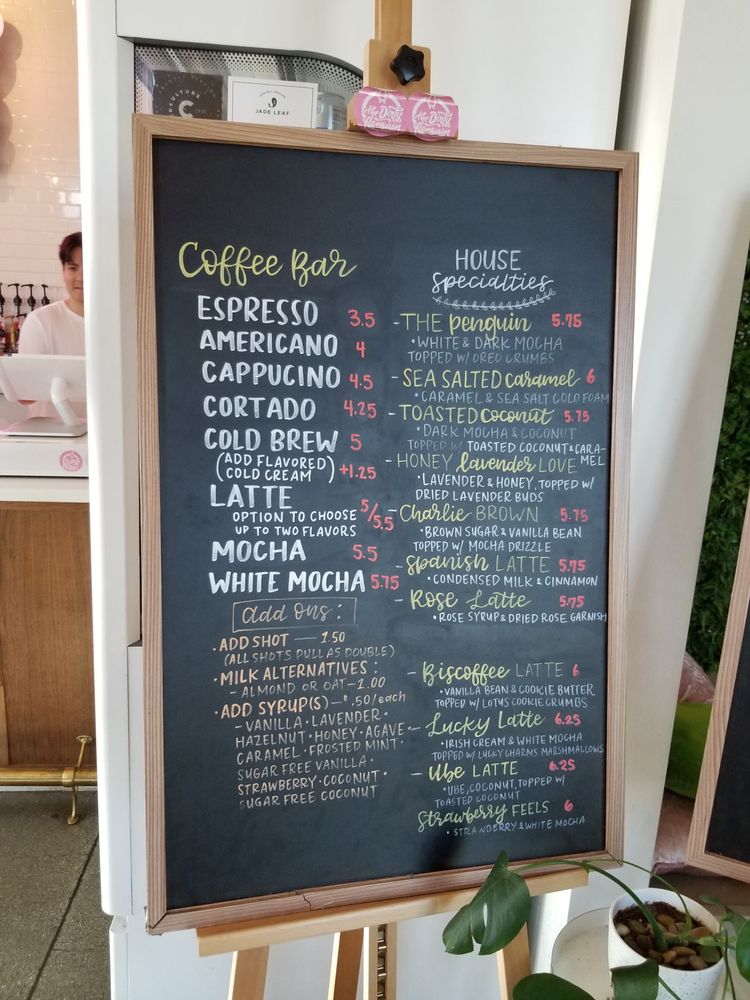 CULTURE
C
JADE LEAF
The Dirty Penguin
The Dirty Penguin
Coffee Bar
ESPRESSO 3.5
AMERICANO 4
CAPPUCINO 4.5
CORTADO 4.25
COLD BREW 5
(ADD FLAVORED COLD CREAM) +1.25
LATTE 5/5.5
OPTION TO CHOOSE
UP TO TWO FLAVORS
MOCHA 5.5
WHITE MOCHA 5.75
add ons:
• ADD SHOT — 1.50
(ALL SHOTS PULL AS DOUBLE)
• MILK ALTERNATIVES:
- ALMOND OR OAT - 1.00
• ADD SYRUP(S) - $.50/each
- VANILLA • LAVENDER •
HAZELNUT • HONEY • AGAVE •
CARAMEL • FROSTED MINT •
SUGAR FREE VANILLA •
STRAWBERRY • COCONUT •
SUGAR FREE COCONUT
HOUSE
Specialties
- THE penguin 5.75
• WHITE & DARK MOCHA
TOPPED W/ OREO CRUMBS
- SEA SALTED caramel 6
• CARAMEL & SEA SALT COLD FOAM
- TOASTED coconut 5.75
• DARK MOCHA & COCONUT
TOPPED W/ TOASTED COCONUT & CARA-
MEL
- HONEY lavender LOVE
• LAVENDER & HONEY, TOPPED W/
DRIED LAVENDER BUDS
- Charlie BROWN 5.75
• BROWN SUGAR & VANILLA BEAN
TOPPED W/ MOCHA DRIZZLE
- Spanish LATTE 5.75
• CONDENSED MILK & CINNAMON
- Rose Latte 5.75
• ROSE SYRUP & DRIED ROSE GARNISH
- Biscoffee LATTE 6
• VANILLA BEAN & COOKIE BUTTER
TOPPED W/ LOTUS COOKIE CRUMBS
- Lucky Latte 6.25
• IRISH CREAM & WHITE MOCHA
TOPPED W/ LUCKY CHARMS MARSHMALLOWS
- Ube LATTE 6.25
• UBE, COCONUT, TOPPED W/
TOASTED COCONUT
Strawberry FEELS 6
• STRAWBERRY & WHITE MOCHA